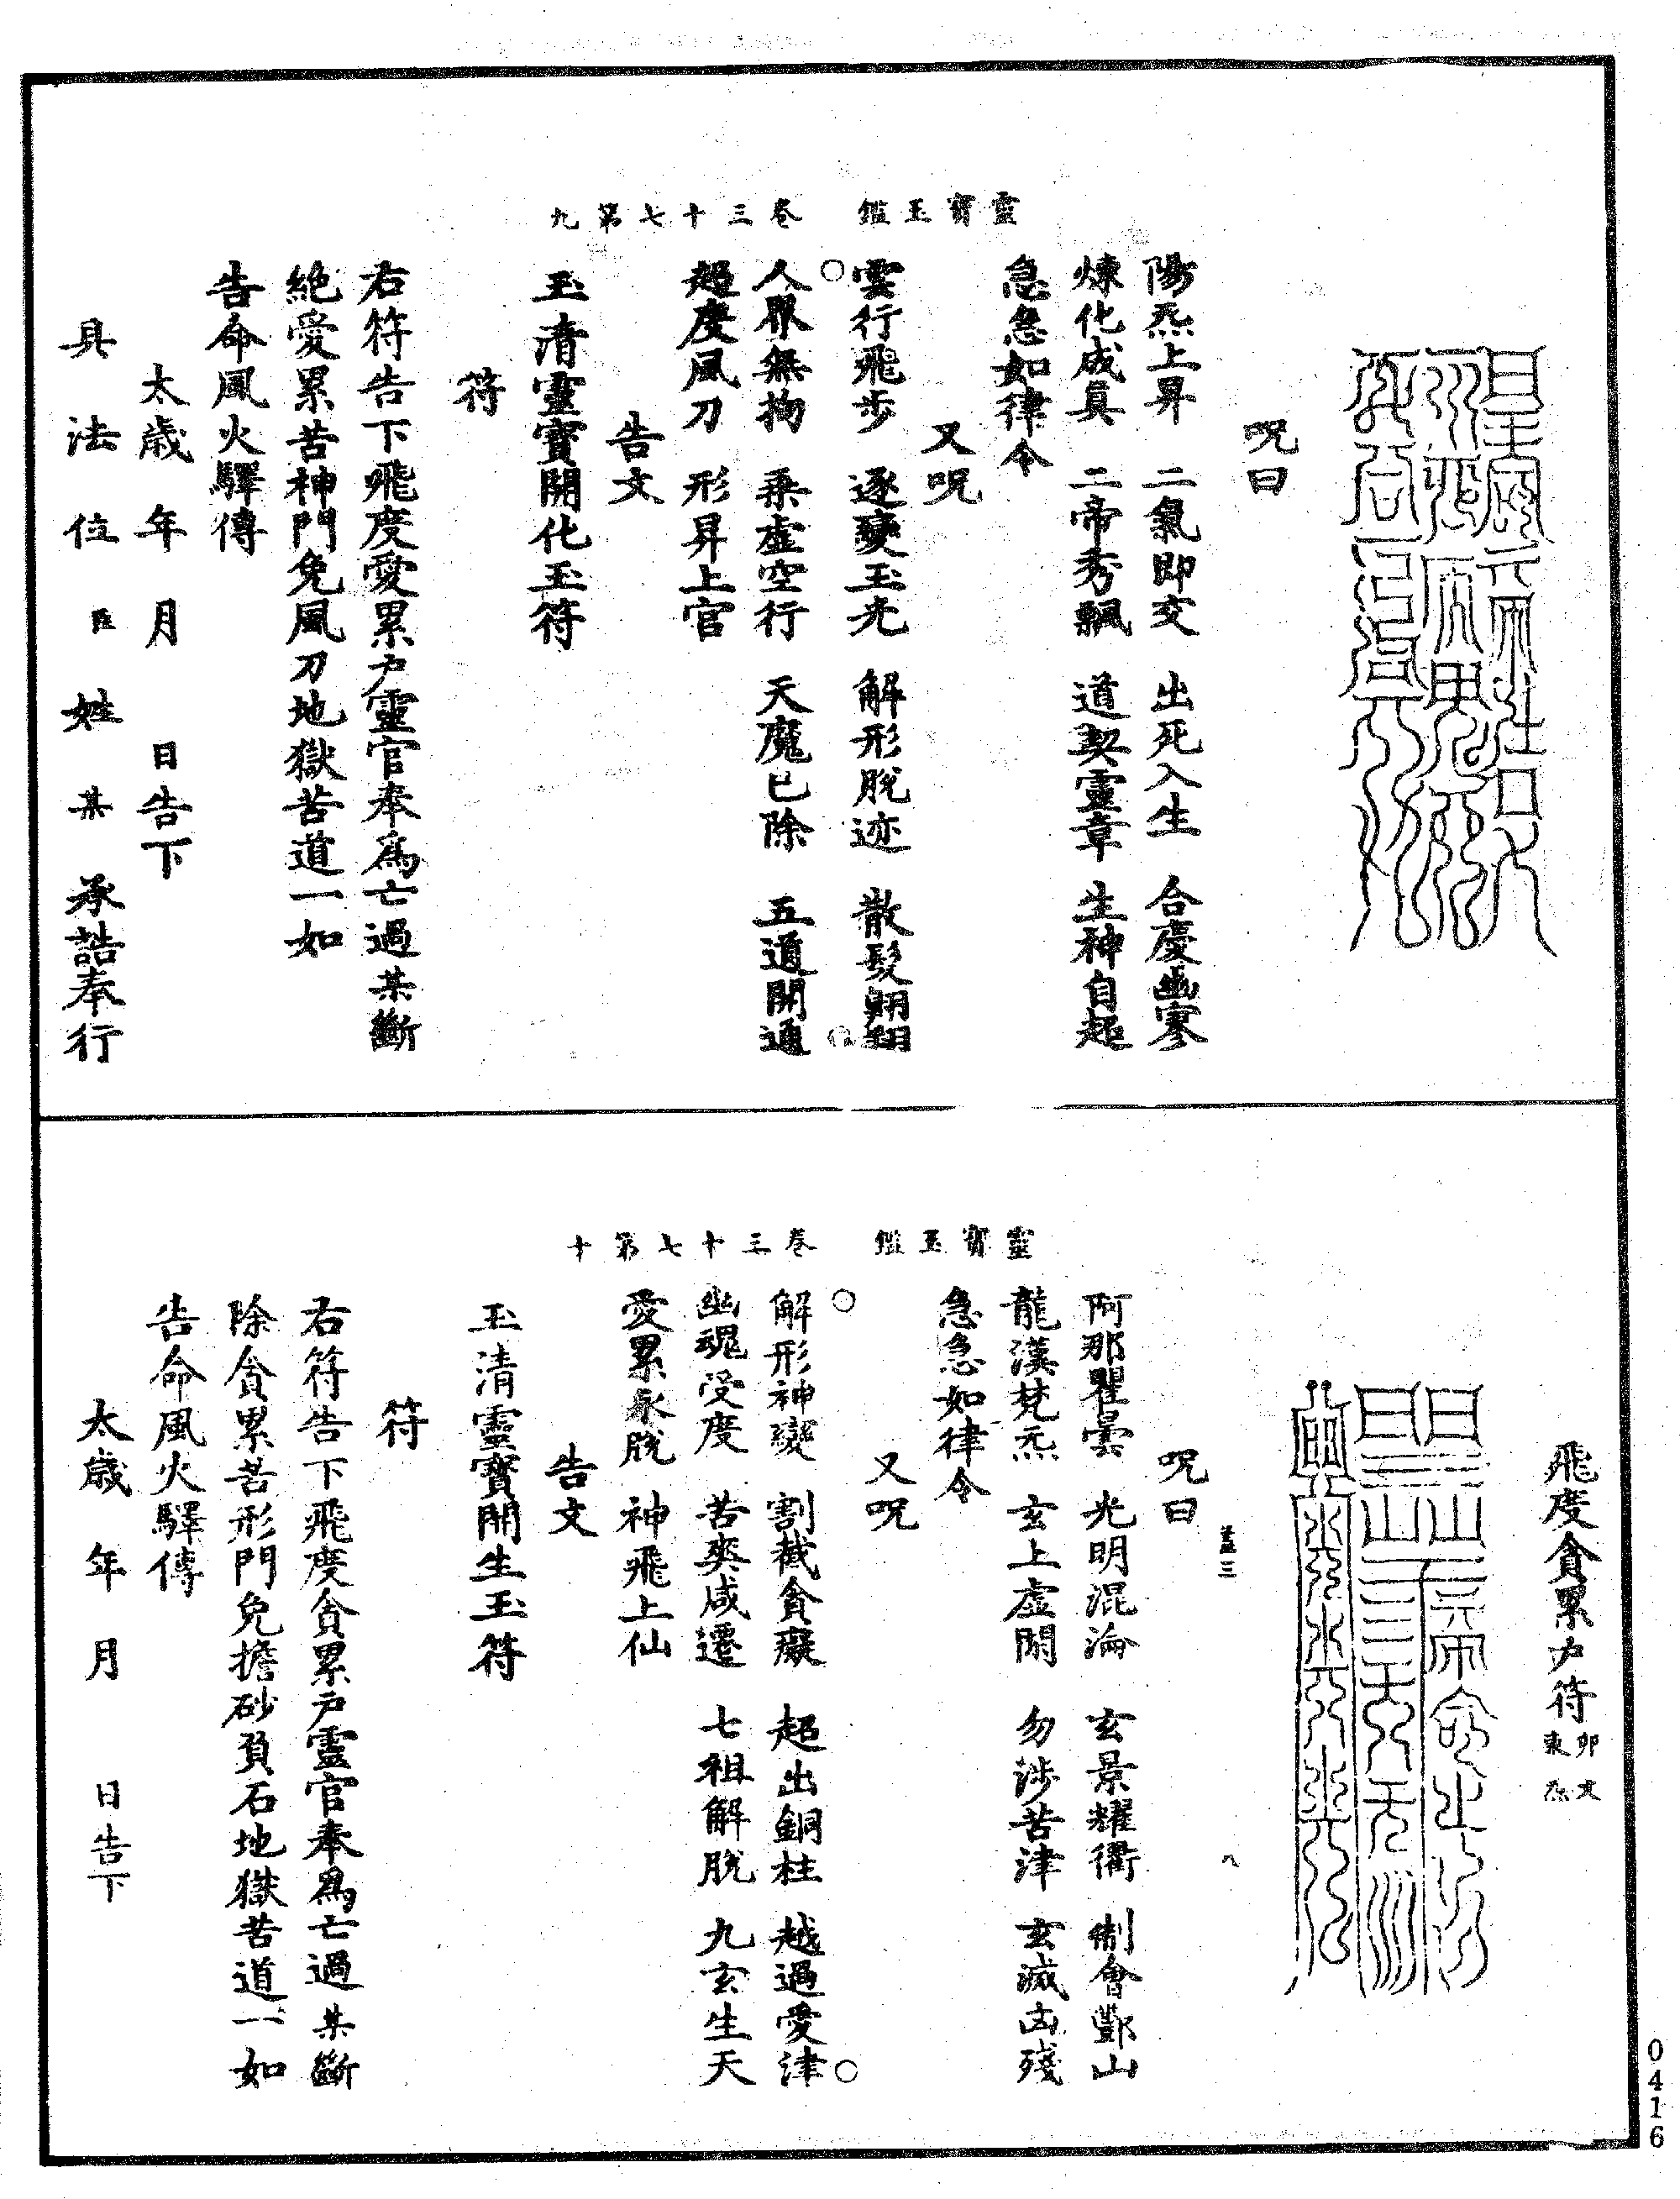 靈寶玉鑑　卷三十七第九
呪曰
陽炁上昇　二氣即交　出死入生　合慶幽寥
煉化成真　二帝秀飄　道契靈章　生神自超
急急如律令
又呪
雲行飛步　逐變玉光　解形脫迹　散髮翱翔
人界無拘　乘虛空行　天魔已除　五道開通
超度風刀　形昇上官
告文
玉清靈寶開化玉符
符
右符告下飛度愛累户靈官奉爲亡過某斷
絕愛累苦神門免風刀地獄苦道一如
告命風火驛傳
太歲　年　月　日告下
具法位　臣　姓　某　承誥奉行
靈寶玉鑑　卷三十七第十
飛度貪累户符卯文東炁
蓋三　八
呪曰
阿那瞿曇　光明混淪　玄景耀衢　制會酆山
龍漢梵炁　玄上虛開　勿涉苦津　玄滅凶殘
急急如律令
又呪
解形神變　割截貪癡　超出銅柱　越過愛津
幽魂受度　苦爽咸遷　七祖解脫　九玄生天
愛累永脫　神飛上仙
告文
玉清靈寶開生玉符
符
右符告下飛度貪累户靈官奉爲亡過某斷
除貪累苦形門免擔砂負石地獄苦道一如
告命風火驛傳
太歲　年　月　日告下
0416